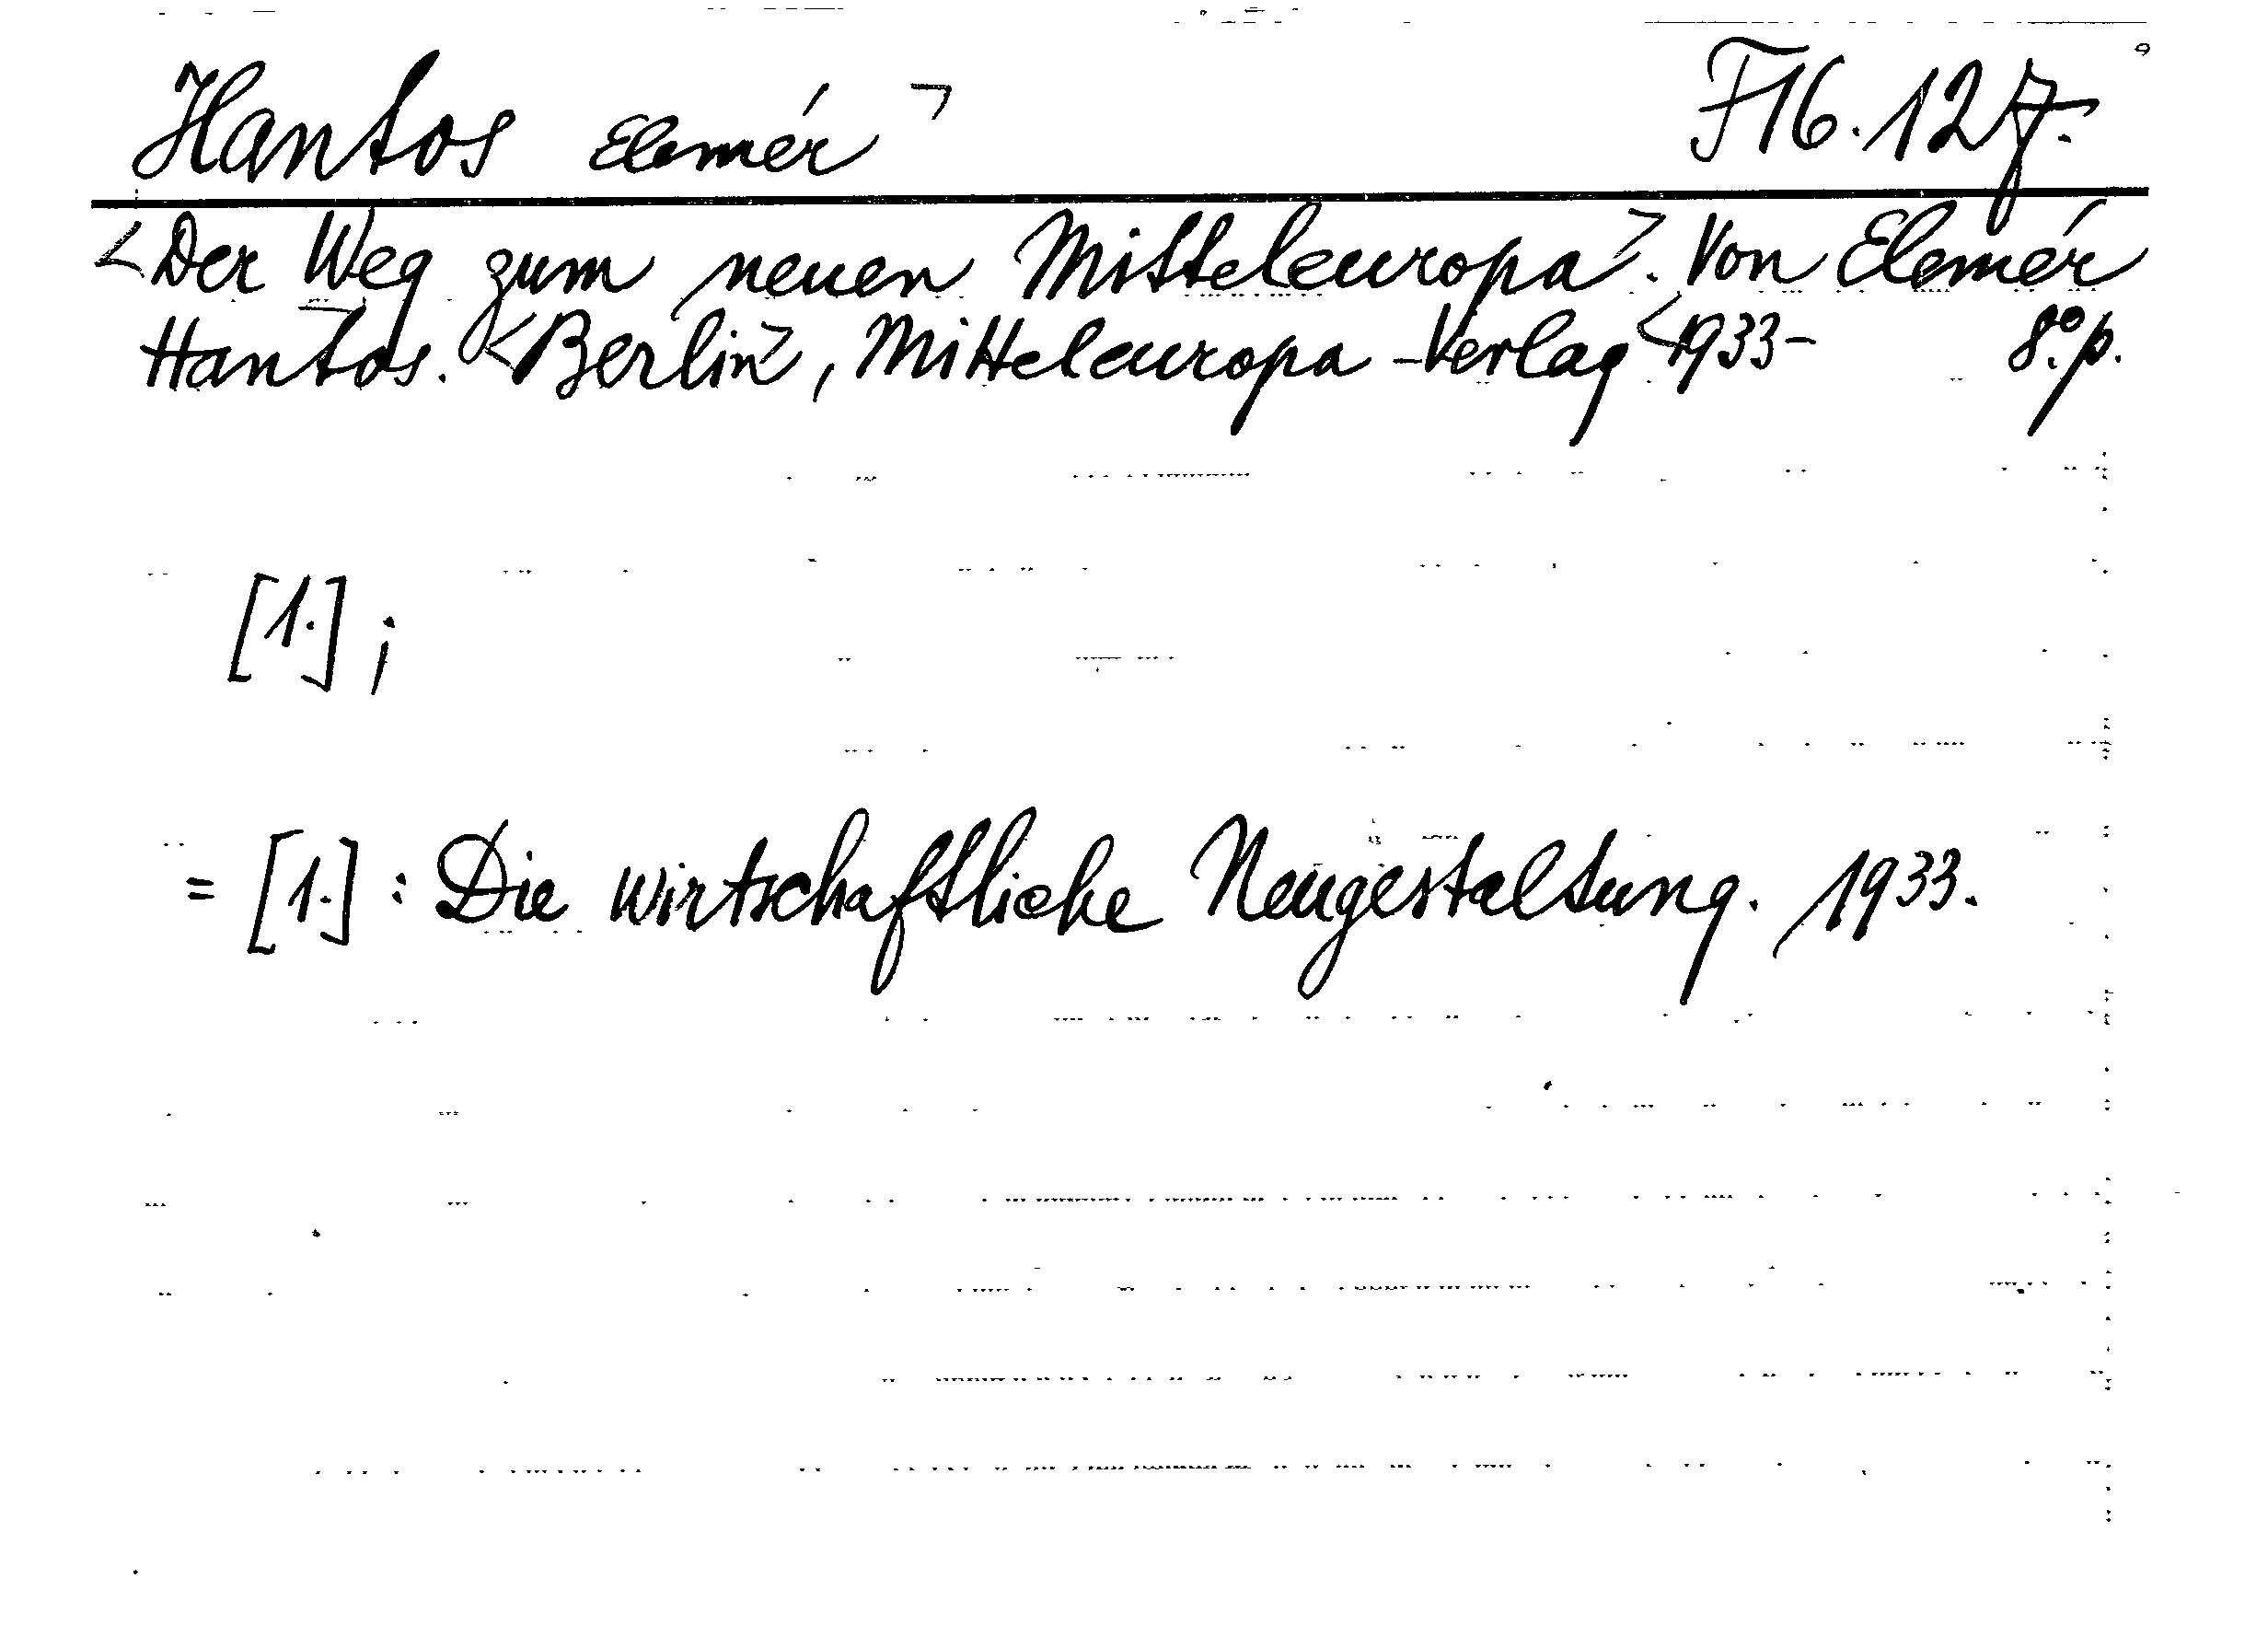 Hantos Elemér ㄱ F16.127.
<Der Weg zum neuen Mitteleuropa>. Von Elemér
Hantos. <Berlin>, Mitteleuropa-Verlag <1933- 8° p.
[1.] ;
= [1.] : Die wirtschaftliche Neugestaltung. 1933.